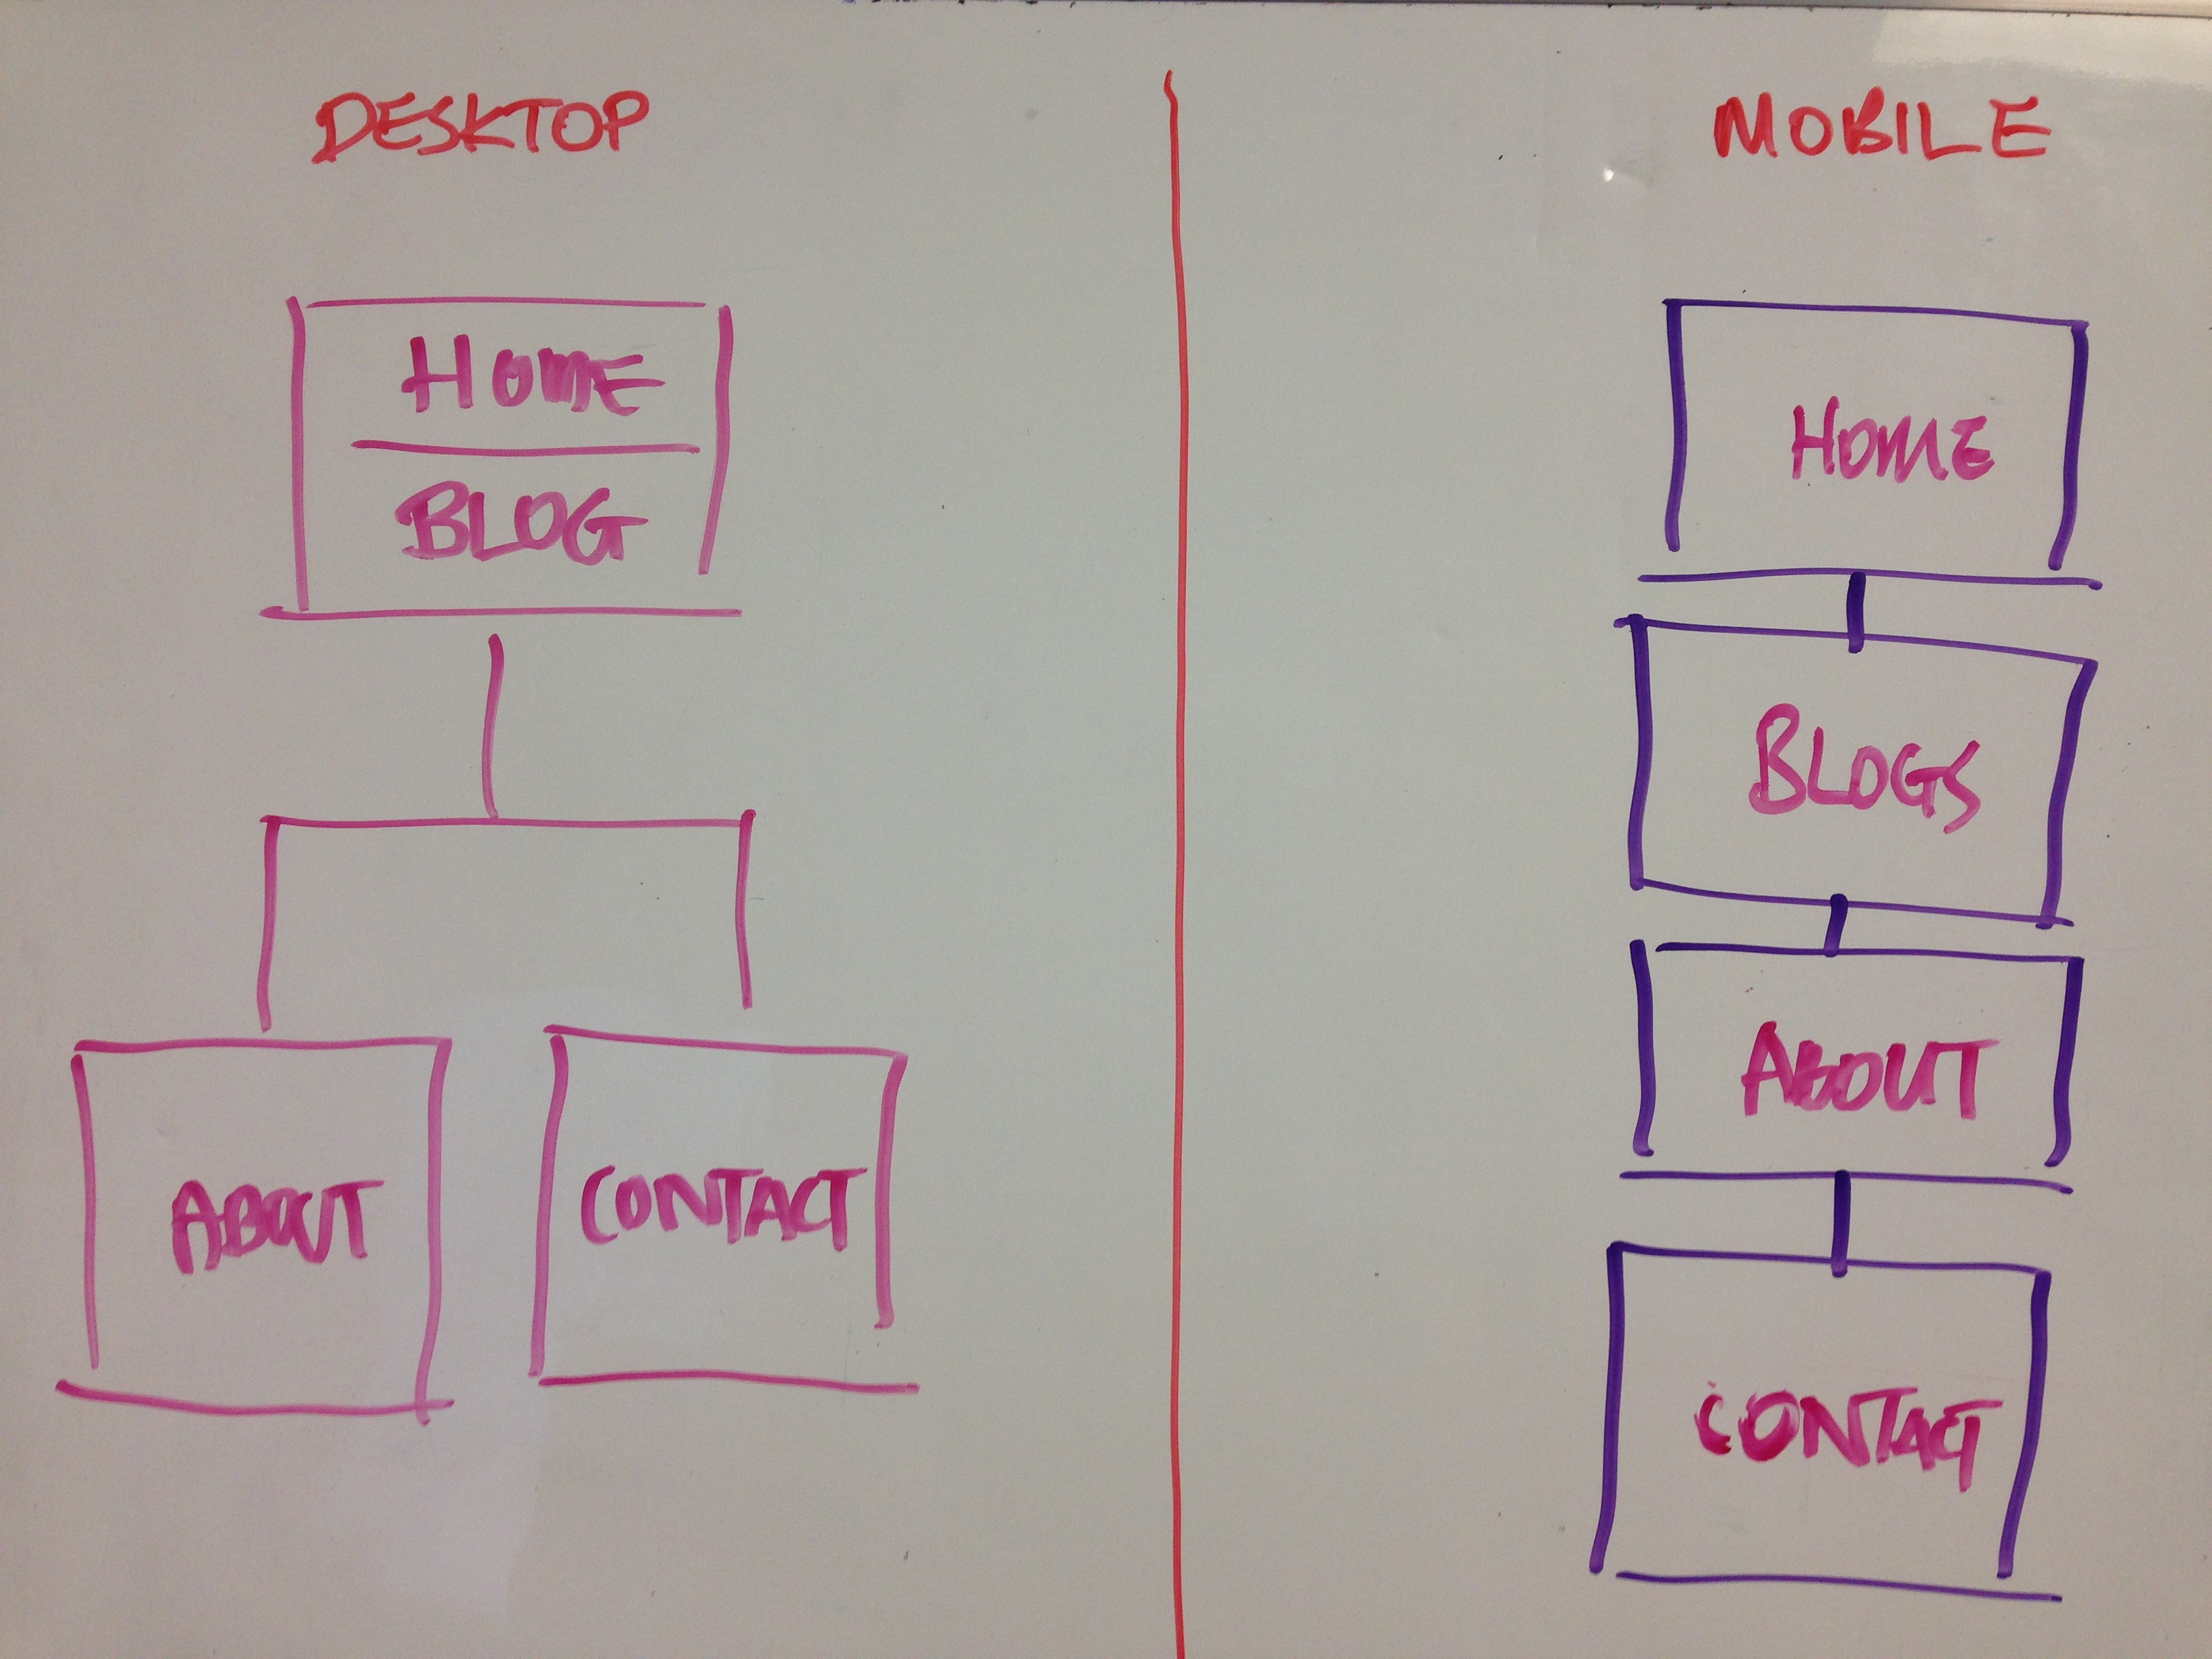 DESKTOP
HOME
BLOG
ABOUT
CONTACT
MOBILE
HOME
BLOGS
ABOUT
CONTACT